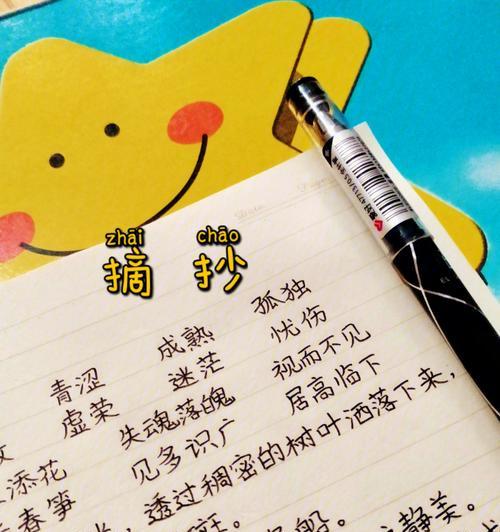 zhāi chāo
摘 抄
青涩 成熟 孤独
虚荣 迷茫 忧伤
添花 失魂落魄 视而不见
春笋 见多识广 居高临下
，透过稠密的树叶洒落下来，
斑。
般 静美。